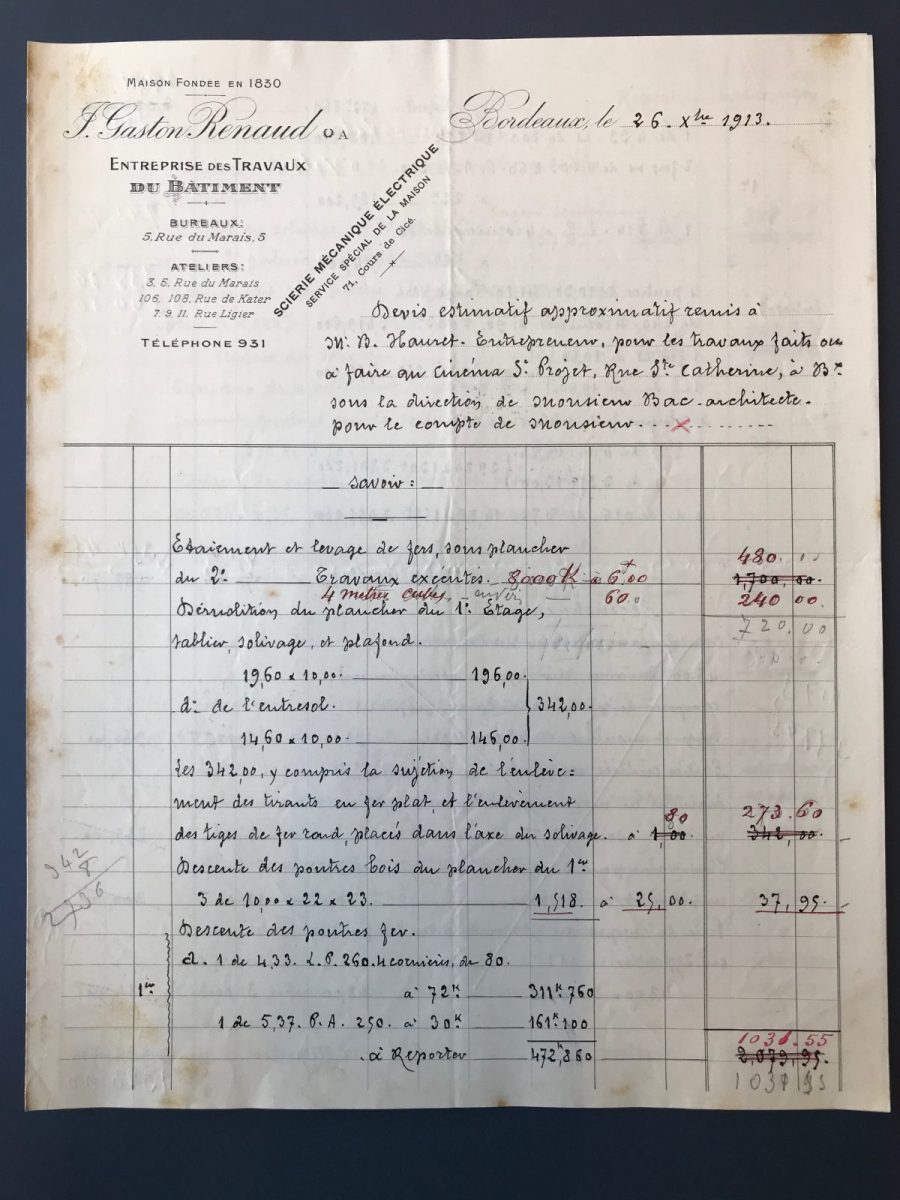 MAISON FONDÉE EN 1830
J. Gaston Renaud O A
ENTREPRISE DES TRAVAUX
DU BÂTIMENT
BUREAUX:
5, Rue du Marais, 5
ATELIERS:
3, 6, Rue du Marais
106, 108, Rue de Kater
7, 9, 11, Rue Ligier
TÉLÉPHONE 931
SCIERIE MÉCANIQUE ÉLECTRIQUE
SERVICE SPÉCIAL DE LA MAISON
71, Cours de Cicé.
Bordeaux, le 26. Xbre 1913.
Devis estimatif approximatif remis à
Mr. B. Hauret. Entrepreneur, pour les travaux faits ou
à faire au Cinéma St Projet, Rue Ste Catherine, à Bx
sous la direction de Monsieur Bac. architecte.
pour le compte de Monsieur. . . X
Savoir:
Etaiement et levage de fers, sous plancher 480.
du 2e Travaux exécutés. 8000K à 6.00 1,700,00.
4 metres cubes 60. 240 00.
Démolition du plancher du 1er Etage, 720,00
tablier, solivage, et plafond.
19,60 x 10,00. 196,00.
do de l'entresol. 342,00.
14,60 x 10,00. 146,00.
Les 342,00, y compris la sujétion de l'enlève=
ment des tirants en fer plat, et l'enlèvement 80 273.60
des tiges de fer rond, placés dans l'axe du solivage. à 1,00. 342,00.
342
8
2736
Descente des poutres bois du plancher du 1er
3 de 10,00 x 22 x 23. 1,518. à 25,00. 37,95.
Descente des poutres fer.
d. 1 de 4,33. L.P. 260. 4 cornières, de 80.
1er à 72k 311k,760
1 de 5,37. P.A. 250. à 30k 161k,100
1031.55
à Reporter 472k,860 2,079,95.
1031 55